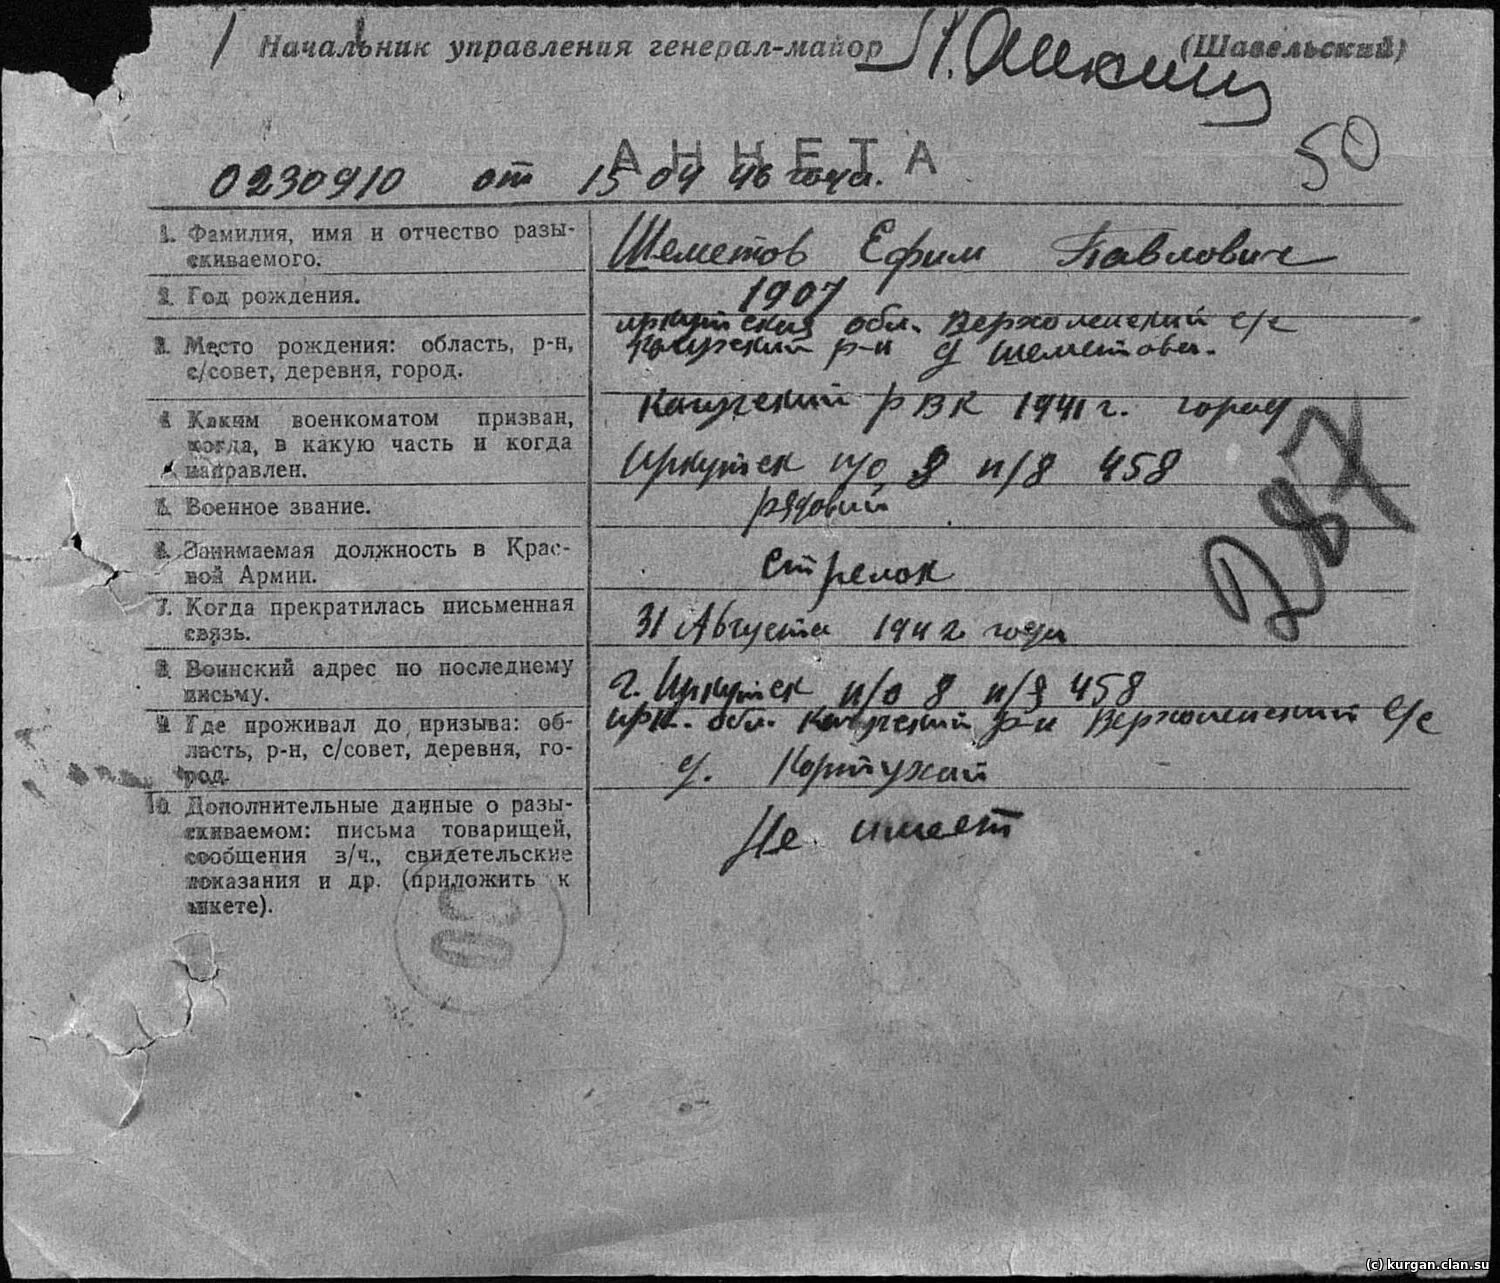 Начальник управления генерал-майор (Шавельский)
50
АНКЕТА
0230910 от 15 04 46 года.
1. Фамилия, имя и отчество разы-
скиваемого.
Шеметов Ефим Павлович
2. Год рождения.
1907
3. Место рождения: область, р-н,
с/совет, деревня, город.
иркутская обл. Верхоленский с/с
Качугский р-н д Шеметова.
4. Каким военкоматом призван,
когда, в какую часть и когда
направлен.
Качугский рВК 1941 г. город
Иркутск п/о 8 п/я 458
5. Военное звание.
рядовий
6. Занимаемая должность в Крас-
ной Армии.
стрелок
287
7. Когда прекратилась письменная
связь.
31 Августа 1942 года
8. Воинский адрес по последнему
письму.
г. Иркутск п/о 8 п/я 458
9. Где проживал до призыва: об-
ласть, р-н, с/совет, деревня, го-
род.
ирк. обл. Качугский р-н Верхоленский с/с
д. Кортухай
10. Дополнительные данные о разы-
скиваемом: письма товарищей,
сообщения з/ч., свидетельские
показания и др. (приложить к
анкете).
Не имеет
(c) kurgan.clan.su